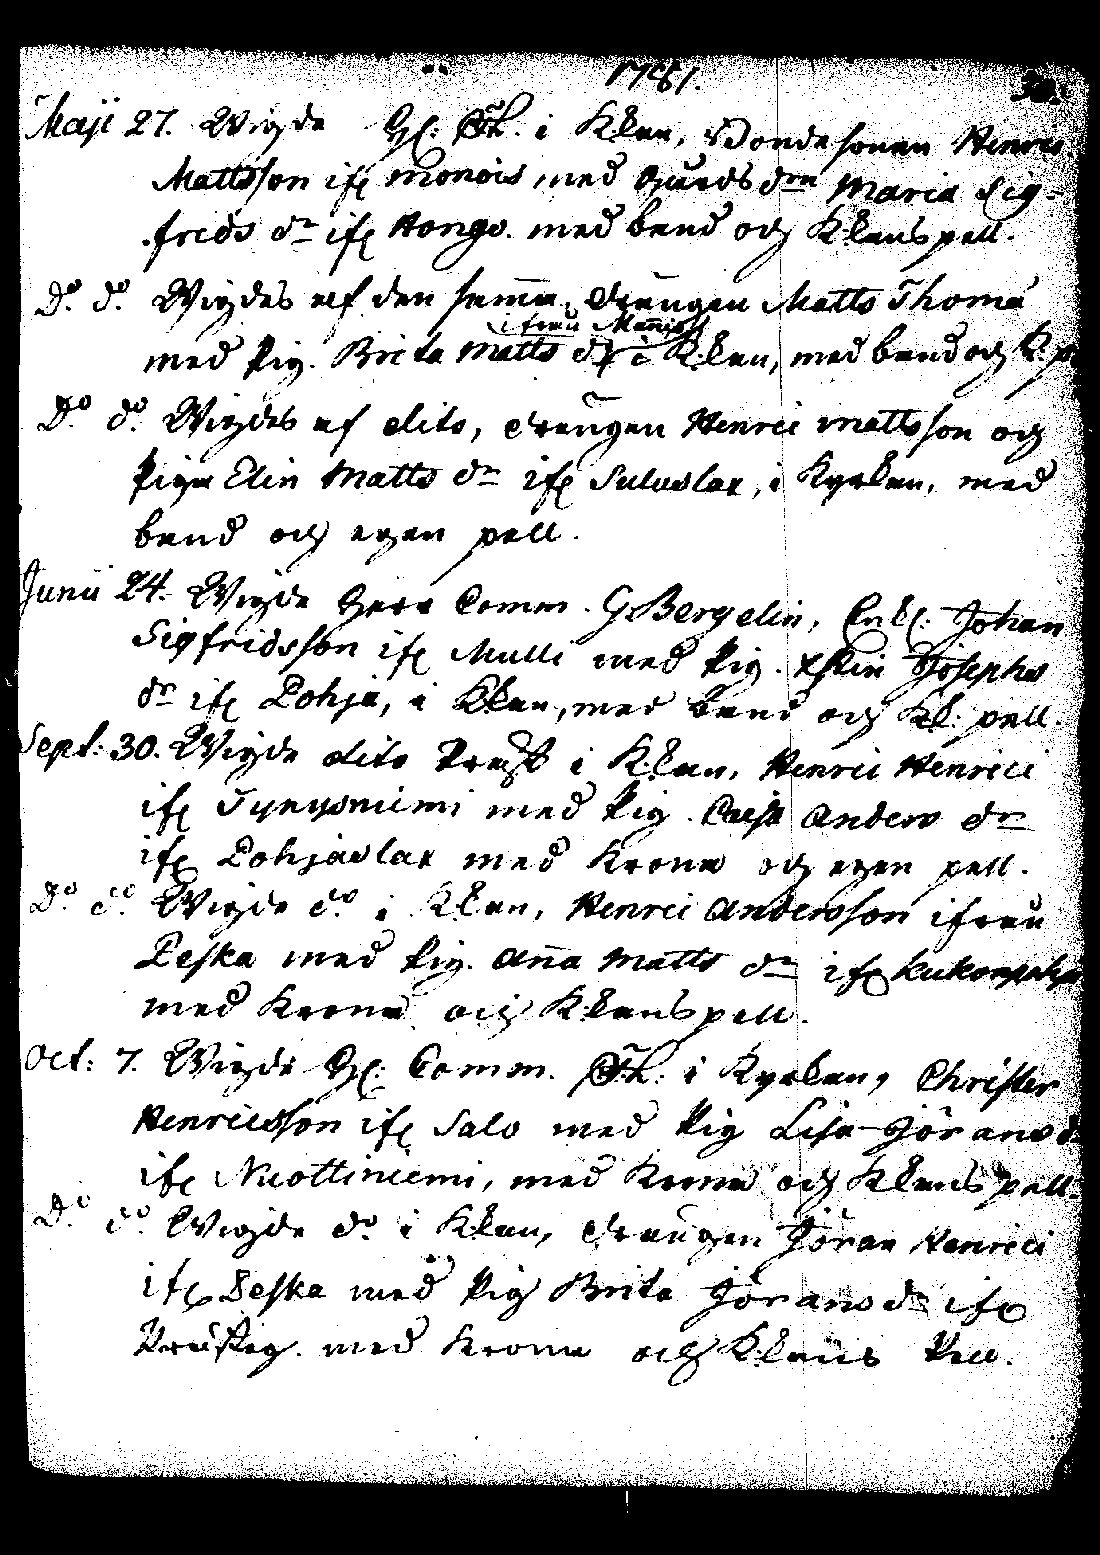 1781.
Maji 27. Wigde H: i K:kan, Bondesonen Henric
Mattsson ifr Monois, med Gårds dn Maria Sig-
frids dr ifr Hongo. med band och K:kans pell.
Do do Wigdes af den samma, drängen Matts Thomæ
ifrån Mänois
med pig. Brita Matts dr i K:kan, med band och K.
Do do Wigdes af dito, drängen Henric Mattsson och
Pigan Elin Matts dr ifr Suluslax, i Kyrkan, med
band och egen pell.
Junii 24. Wigde Herr Comm. G. Bergelin, Enkl: Johan
Sigfridsson ifr Mulli med pig. Josephs
dr ifr Pohja, i K:kan, med band och K:k: pell.
Sept: 30. Wigde dito Präst i K:kan, Henric Henrici
ifr Tynysniemi med pig. Caisa Anders dr
ifr Pohjaslax med Krona och egen pell.
Do do Wigde do i K:kan, Henric Andersson ifrån
Peska med pig. Anna Matts dr ifr
med Krona och K:kans pell.
Oct: 7. Wigde H: Comm. i Kyrkan, Christer
Henricsson ifr Salo med pig Lisa Görans d
ifr Nuottiniemi, med Krona och K:kans pell.
Do do Wigde do i K:kan, drängen Göran Henrici
ifr Peska med pig Brita Görans dr ifr
med Krona och K:kans pell.